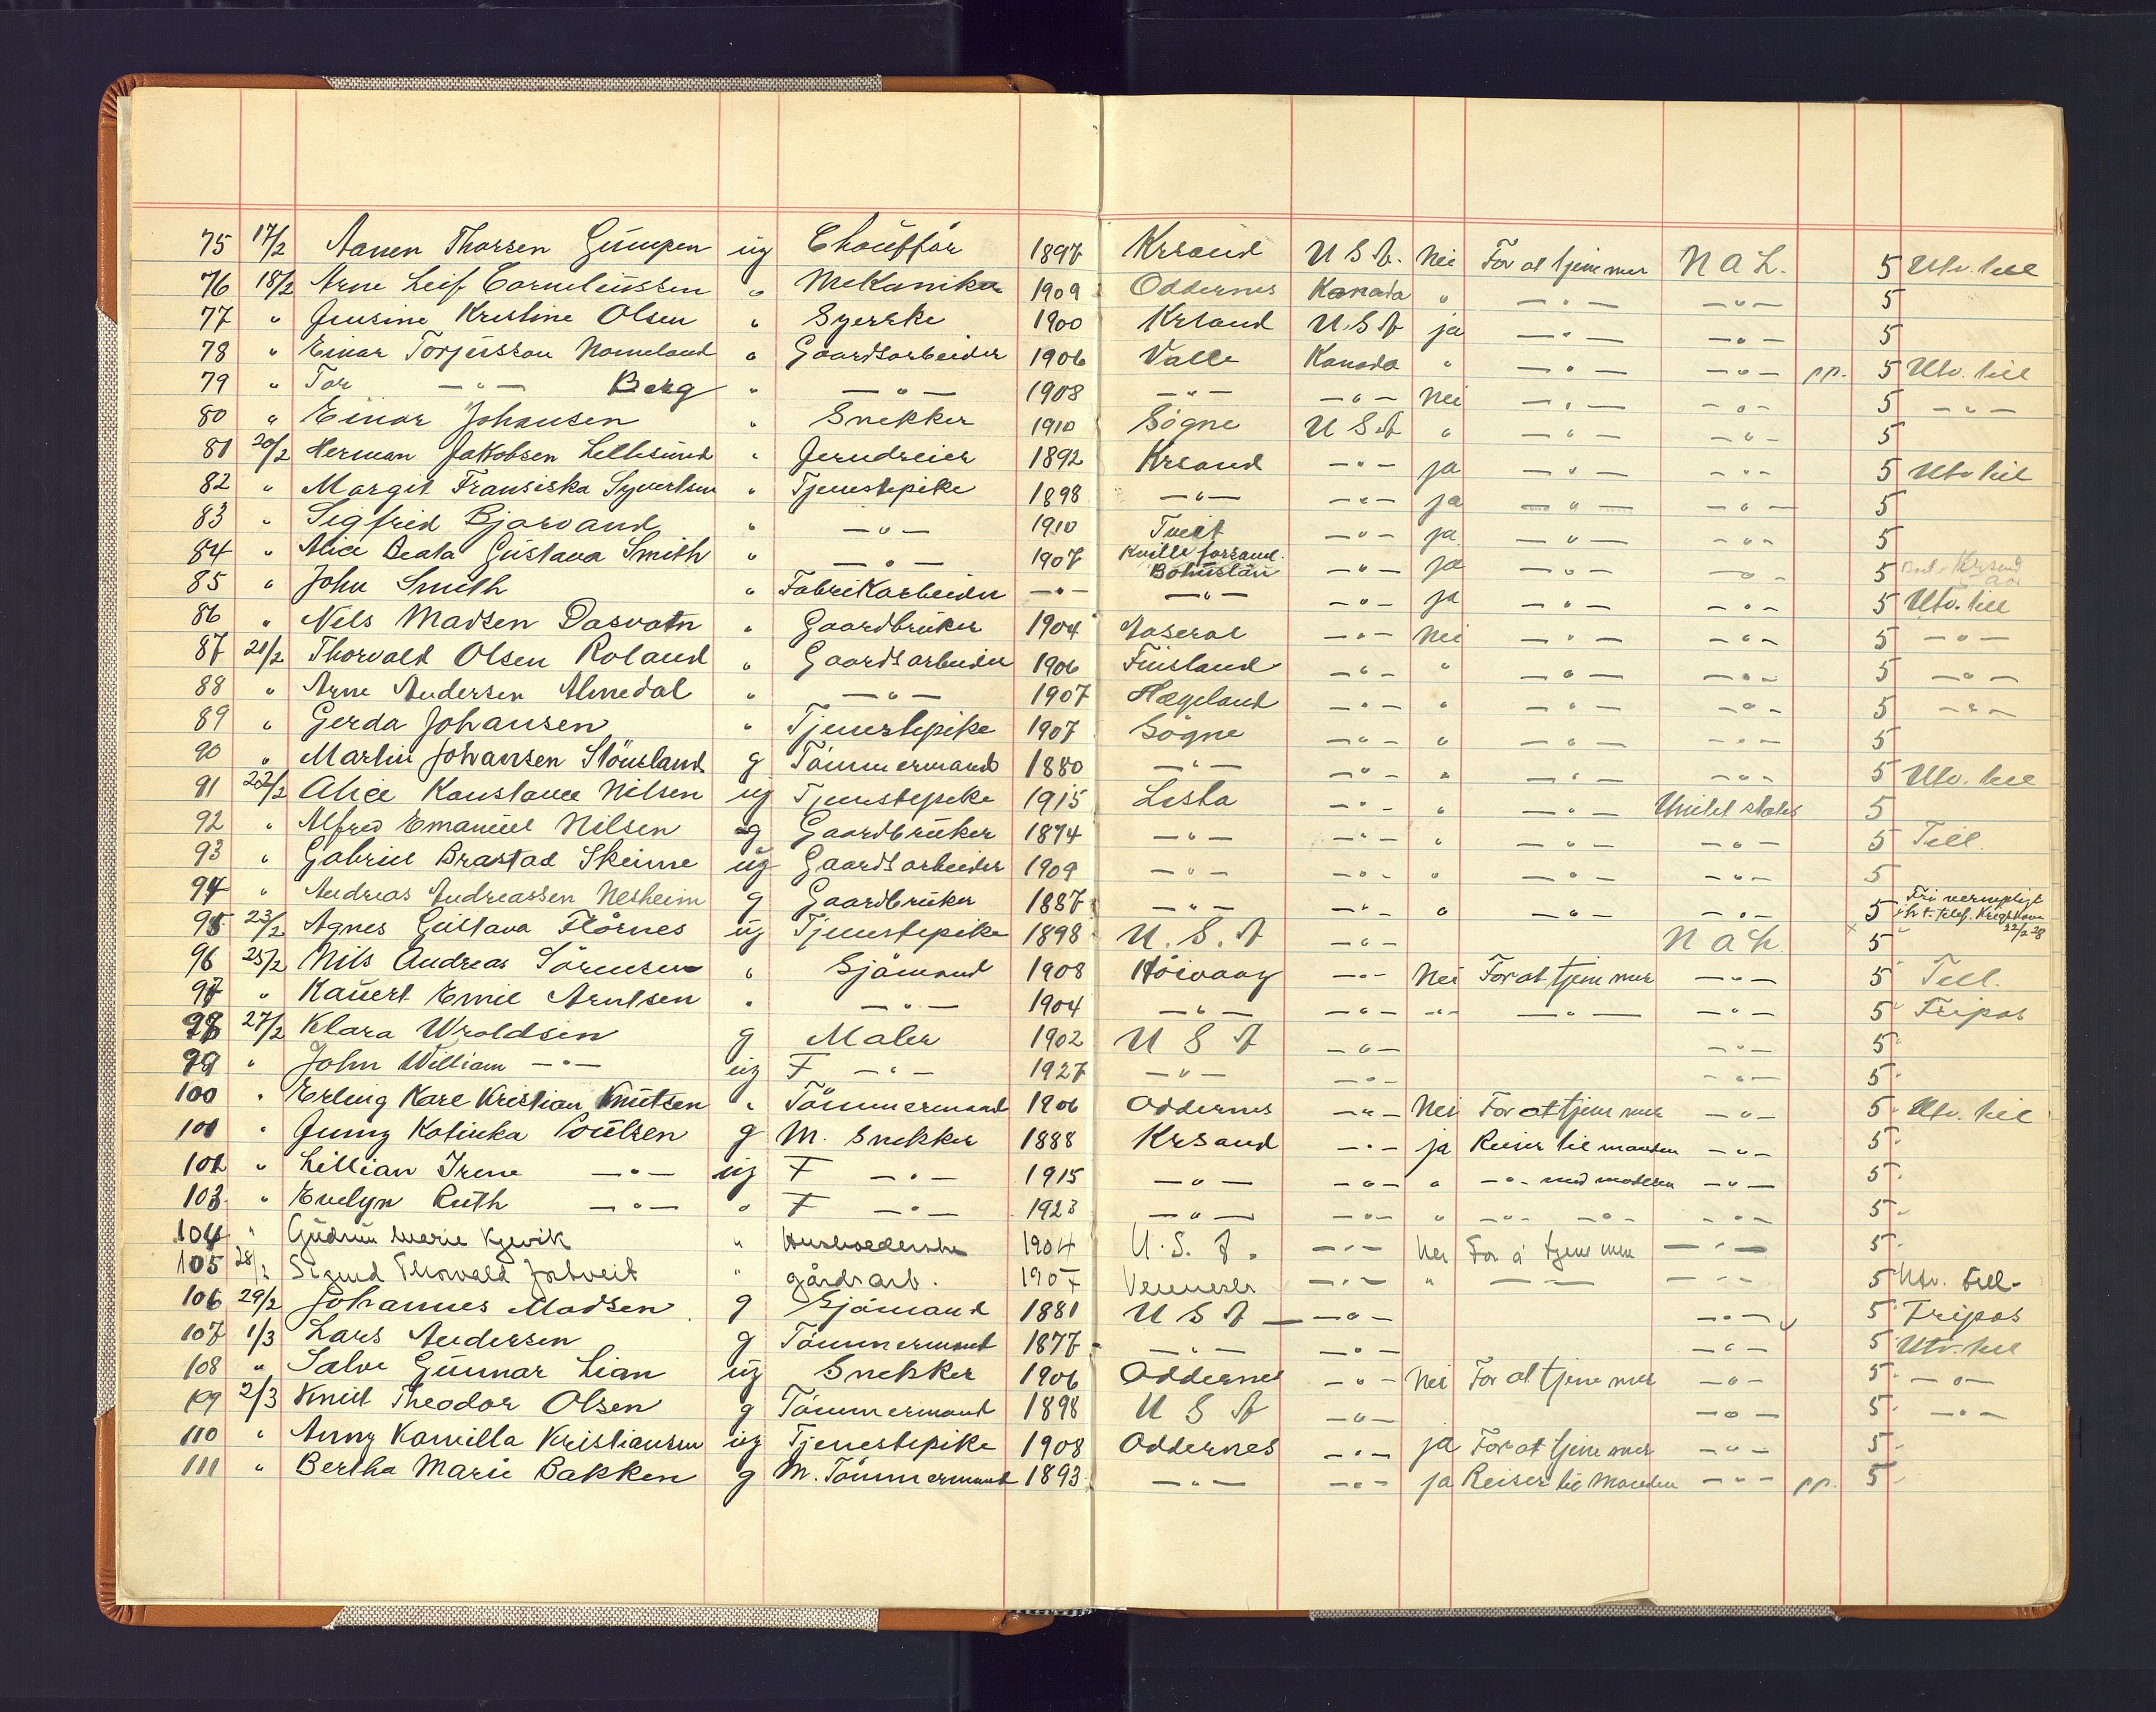 75 17/2 Aanen Thorsen Gumpen ug Chauffør 1897 Krsand U S A. Nei For at tjene mer N A L. 5 Utv. till
76 18/2 Arne Leif Corneliussen " Mekaniker 1909 Oddernes Kanada " — " — — " — 5
77 " Jensine Kristine Olsen " Syerske 1900 Krsand U.S.A ja — " — — " — 5
78 " Einar Torjussen Nomeland " Gaardsarbeider 1906 Valle Kanada " — " — — " — pp. 5 Utv. till
79 " Tor — " — Berg " — " — 1908 — " — — " — Nei — " — — " — 5 — " —
80 " Einar Johansen " Snekker 1910 Søgne U S A " — " — — " — 5
81 20/2 Herman Jakobsen Lillesund " Jerndreier 1892 Krsand — " — ja — " — — " — 5 Utv till
82 " Margit Fransiska Syvertsen " Tjenestepike 1898 — " — — " — ja — " — — " — 5
83 " Sigfrid Bjorvand " — " — 1910 Tveit — " — ja — " — — " — 5
84 " Alice Beata Gustava Smith " — " — 1907 Kville forsaml. Bohuslän — " — ja — " — — " — 5
85 " John Smith " Fabrikarbeider — " — — " — — " — ja — " — — " — 5 Utv. till
86 " Nils Madsen Dasvatn " Gaardbruker 1904 Aaseral — " — Nei — " — — " — 5 — " —
87 21/2 Thorvald Olsen Roland " Gaardsarbeider 1906 Finsland — " — " — " — — " — 5 — " —
88 " Arne Andersen Almedal " — " — 1907 Hægeland — " — " — " — — " — 5 — " —
89 " Gerda Johansen " Tjenestepike 1907 Søgne — " — " — " — — " — 5
90 " Martin Johansen Stöusland g Tømmermand 1880 — " — — " — " — " — — " — 5 Utv. till
91 22/2 Alice Konstance Nilsen ug Tjenestepike 1915 Lista — " — " — " — United states 5
92 " Alfred Emanuel Nilsen g Gaardbruker 1874 — " — — " — " — " — — " — 5 Till.
93 " Gabriel Brastad Skeime ug Gaardsarbeider 1909 — " — — " — " — " — — " — 5
94 " Andreas Andreassen Nesheim g Gaardbruker 1887 — " — — " — " — " — — " — 5 Fri vernepligt iht. telef. 22/2 28
95 23/2 Agnes Gustava Flørnes ug Tjenestepike 1898 U. S. A — " — N A L 5
96 25/2 Nils Andreas Sørensen " Sjømand 1908 Høivaag — " — Nei For at tjene mer — " — 5 Till.
97 " Kauert Emil Arntsen " — " — 1904 — " — — " — — " — — " — — " — 5 Fripas
98 27/2 Klara Wroldsen g Maler 1902 U S A — " — — " — 5
99 " John William — " — ug F — " — 1927 — " — — " — — " — 5
100 " Erling Kare Kristian Knutsen " Tømmermand 1906 Oddernes — " — Nei For at tjene mer — " — 5 Utv. till
101 " Jenny Katinka Poulsen g M. Snekker 1888 Krsand — " — ja Reiser til manden — " — 5
102 " Lillian Irene — " — ug F — " — 1915 — " — — " — " — " — med moderen — " — 5
103 " Evelyn Ruth — " — " F — " — 1923 — " — — " — " — " — — " — — " — 5
104 " Gudrun Marie Kjevik " Husholderske 1904 U. S. A. — " — Nei For å tjene mer — " — 5
105 28/2 Sigurd Thorvald Jortveit " gårdsarb. 1907 Vennesla — " — " — " — — " — 5 Utv. till.
106 29/2 Johannes Madsen g Sjømand 1881 U S A — — " — — " — 5 Fripas
107 1/3 Lars Andersen g Tømmermand 1877 — " — — " — — " — 5 Utv. till
108 " Salve Gunnar Lian ug Snekker 1906 Oddernes — " — Nei For at tjene mer — " — 5 — " —
109 2/3 Knut Theodor Olsen g Tømmermand 1898 U S A — " — — " — 5 — " —
110 " Anny Kamilla Kristiansen ug Tjenestepike 1908 Oddernes — " — ja For at tjene mer — " — 5
111 " Bertha Marie Bakken g M. Tømmermand 1893 — " — — " — ja Reiser til Manden — " — pp. 5